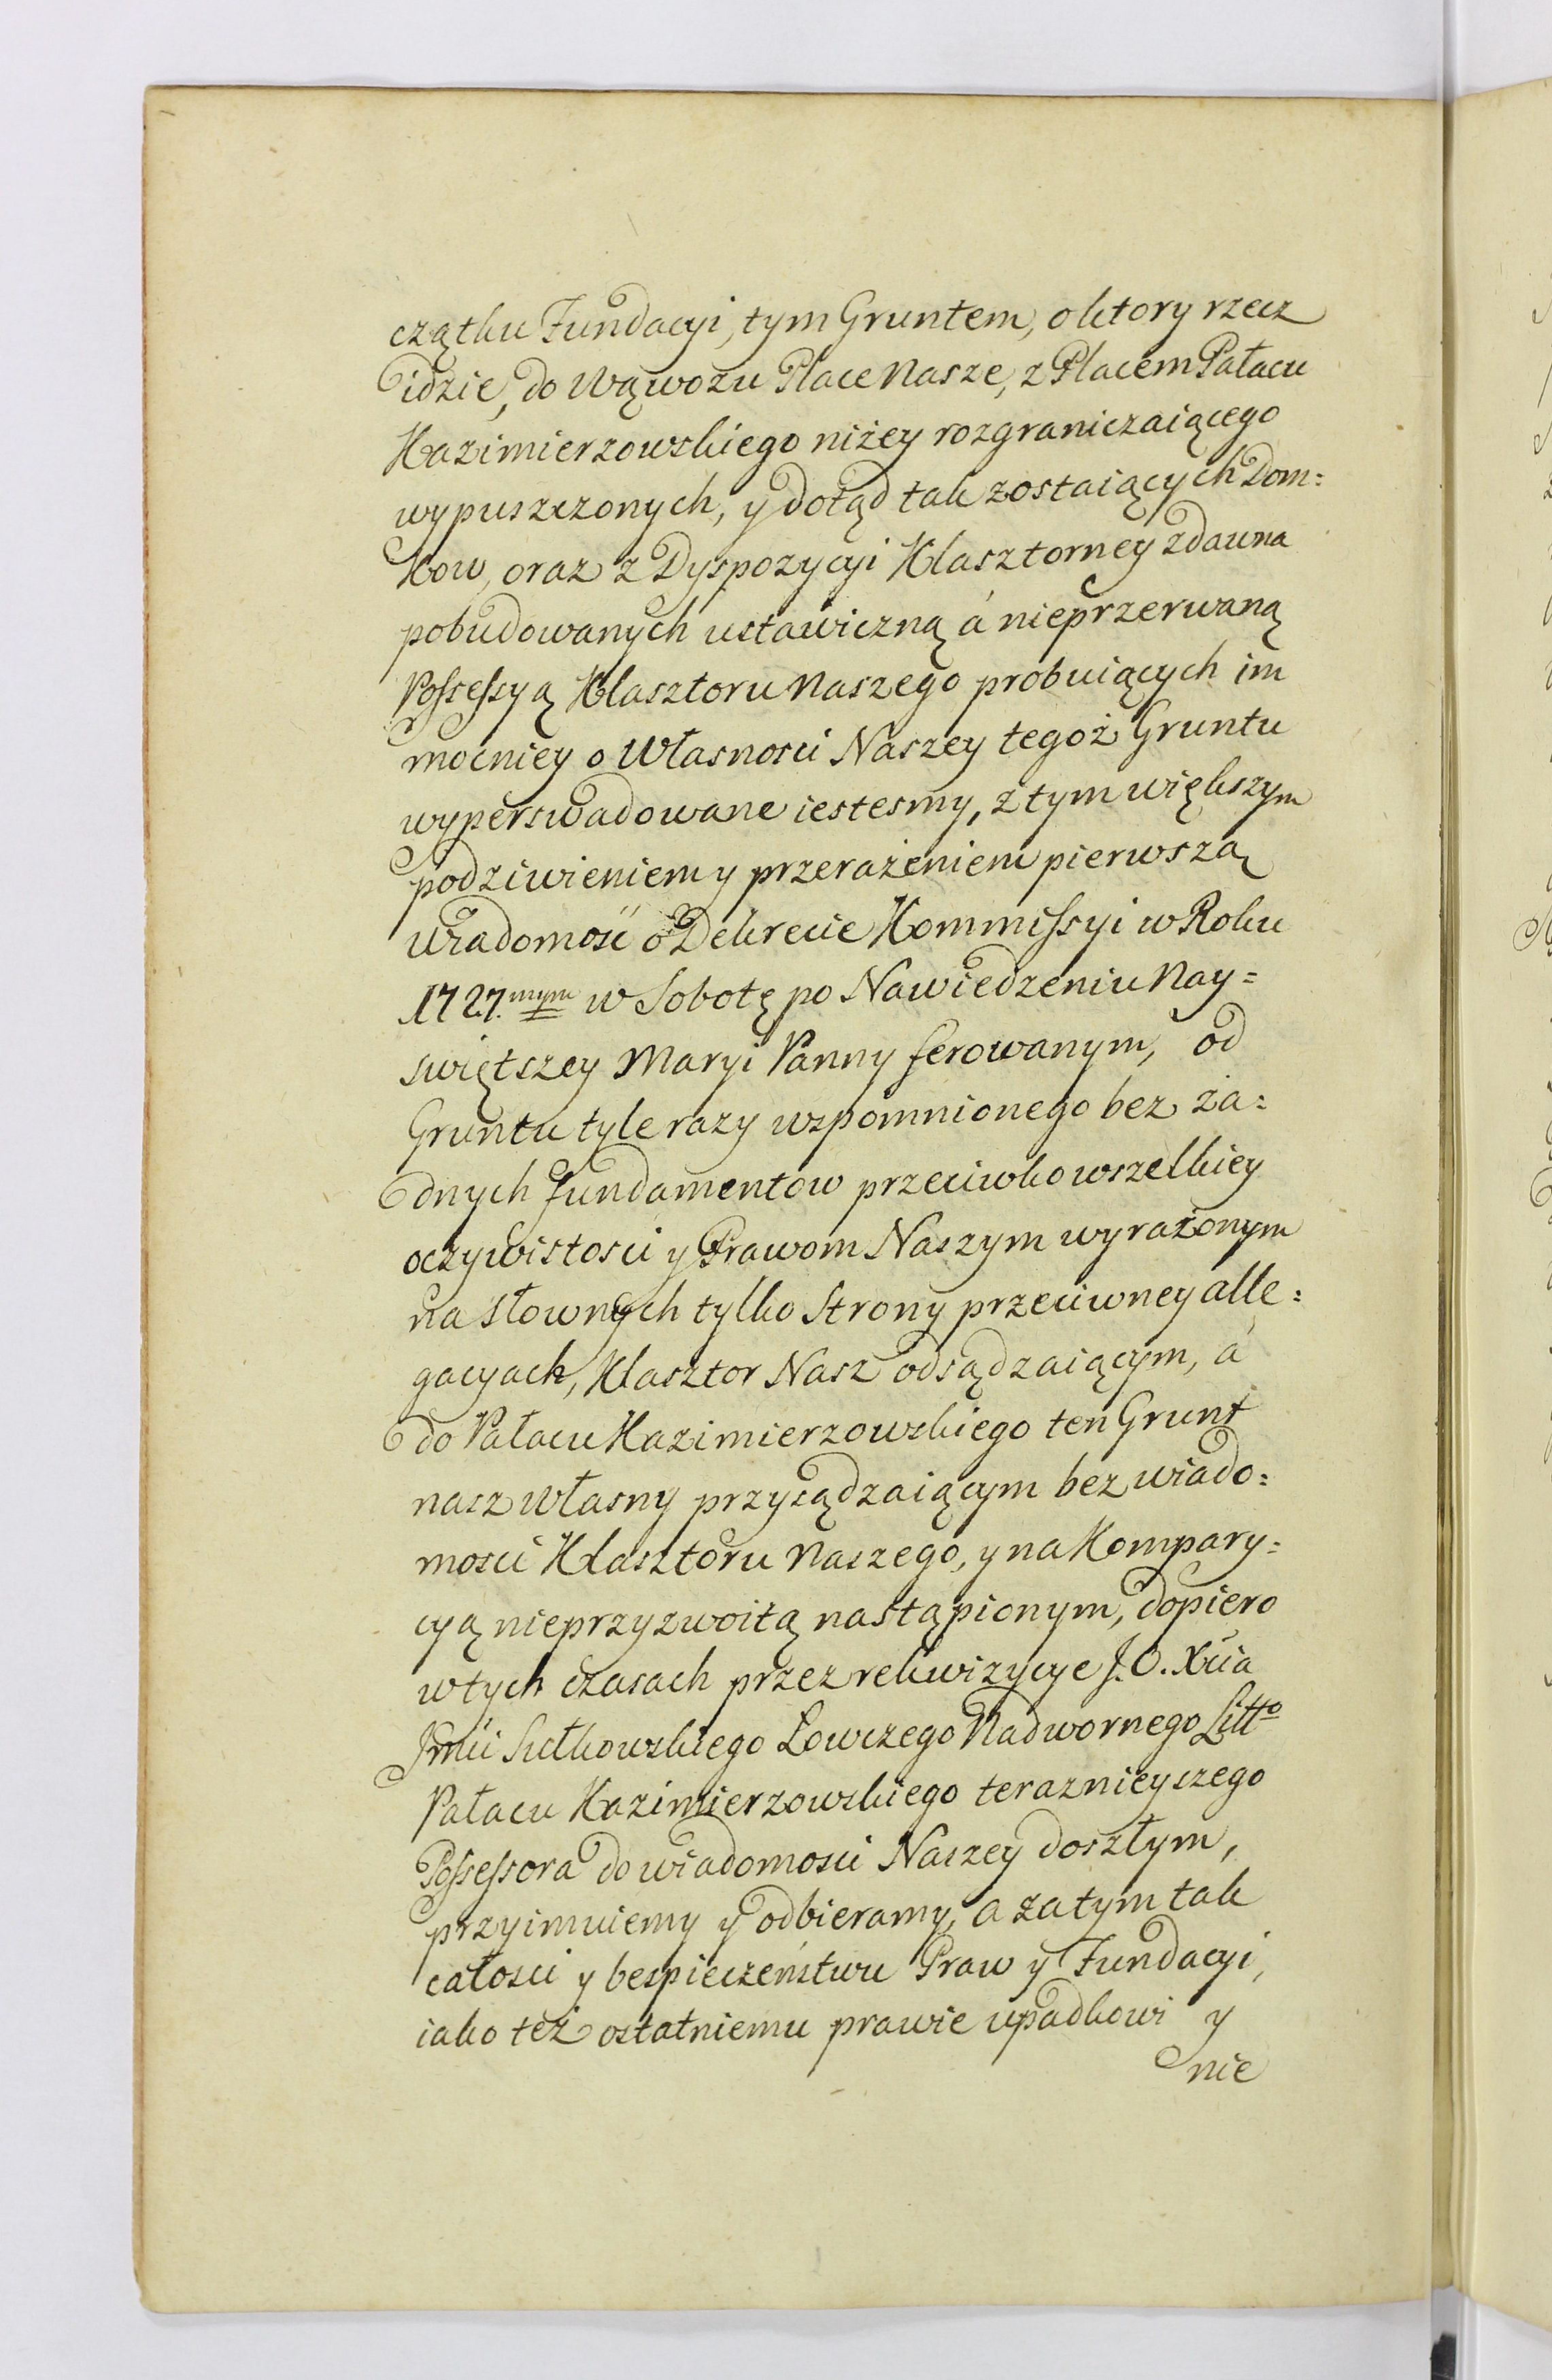 cządku Fundacyi, tym Gruntem, o ktory rzecz
idzie, do Wąwozu Place Nasze, z Placem Pałacu
Kazimierzowskiego niżey rozgraniczaiącego
wypuszczonych, y dotąd tak zostaiących Dom=
kow, oraz z Dyspozycyi Klasztorney zdawna
pobudowanych ustawiczną á nieprzerwaną
Possessyą Klasztoru Naszego probuiących im
mocniey o Własnosci Naszey tegoż Gruntu
wyperswadowane iestesmy, z tym większym
podziwieniem y przerażeniem pierwszą
wiadomość o Dekrecie Kommissyi w Roku
1727.mym w Sobotę po Nawiedzeniu Nay=
swiętszey Maryi Panny ferowanym, od
Gruntu tyle razy wspomnionego bez ża=
dnych fundamentow przeciwko wszelkiey
oczywistosci y Prawom Naszym wyrażonym
na słownych tylko Strony przeciwney alle=
gacyach, Klasztor Nasz odsądzaiącym, á
do Pałacu Kazimierzowskiego ten Grunt
nasz własny przysądzaiącym bez wiado=
mosci Klasztoru Naszego, y na Kompary=
cyą nieprzyzwoitą nastąpionym, dopiero
w tych czasach przez rekwizycye J. O. Xcia
Jmci Sułkowskiego Łowczego Nadwornego Litto
Pałacu Kazimierzowskiego teraznieyszego
Possessora do wiadomosci Naszey doszłym,
przyimuiemy y odbieramy, a zatym tak
całosci y bespieczeństwu Praw y Fundacyi,
iako też ostatniemu prawie upadkowi y
nie